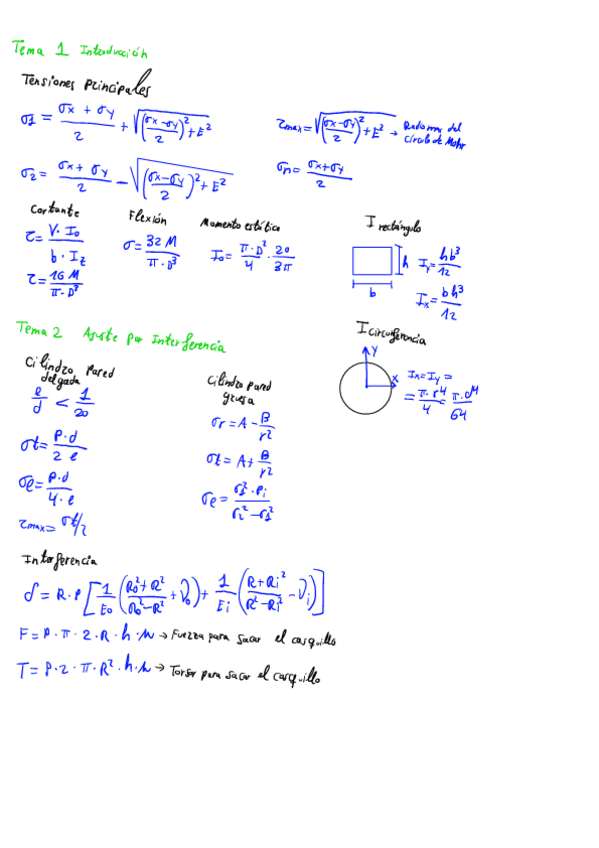 Tema 1 Introducción
Tensiones principales
σ1 = (σx + σy)/2 + √(((σx - σy)/2)² + E²)
τmax = √(((σx - σy)/2)² + E²) → Radio max del círculo de Mohr
σ2 = (σx + σy)/2 - √(((σx - σy)/2)² + E²)
σn = (σx + σy)/2
Cortante
τ = V · I0 / b · Iz
τ = 16 M / π · D³
Flexión
σ = 32 M / π · D³
Momento estático
I0 = π · D²/4 · 20/3π
I rectángulo
h
b
Iy = hb³/12
Ix = bh³/12
Tema 2 Ajuste por Interferencia
Cilindro pared delgada
e/d < 1/20
σt = P · d / 2 e
σe = P · d / 4 · e
τmax = σt/2
Cilindro pared gruesa
σr = A - B/r²
σt = A + B/r²
I circunferencia
Y
X
Ix = Iy =
= π · r⁴/4 = π · d⁴/64
Interferencia
δ = R · P [1/E0 ((R0² + R²)/(R0² - R²) + ν0) + 1/Ei ((R + Ri²)/(R² - Ri²) - νi)]
F = P · π · 2 · R · h · μ → Fuerza para sacar el casquillo
T = P · 2 · π · R² · h · μ → Torsor para sacar el casquillo